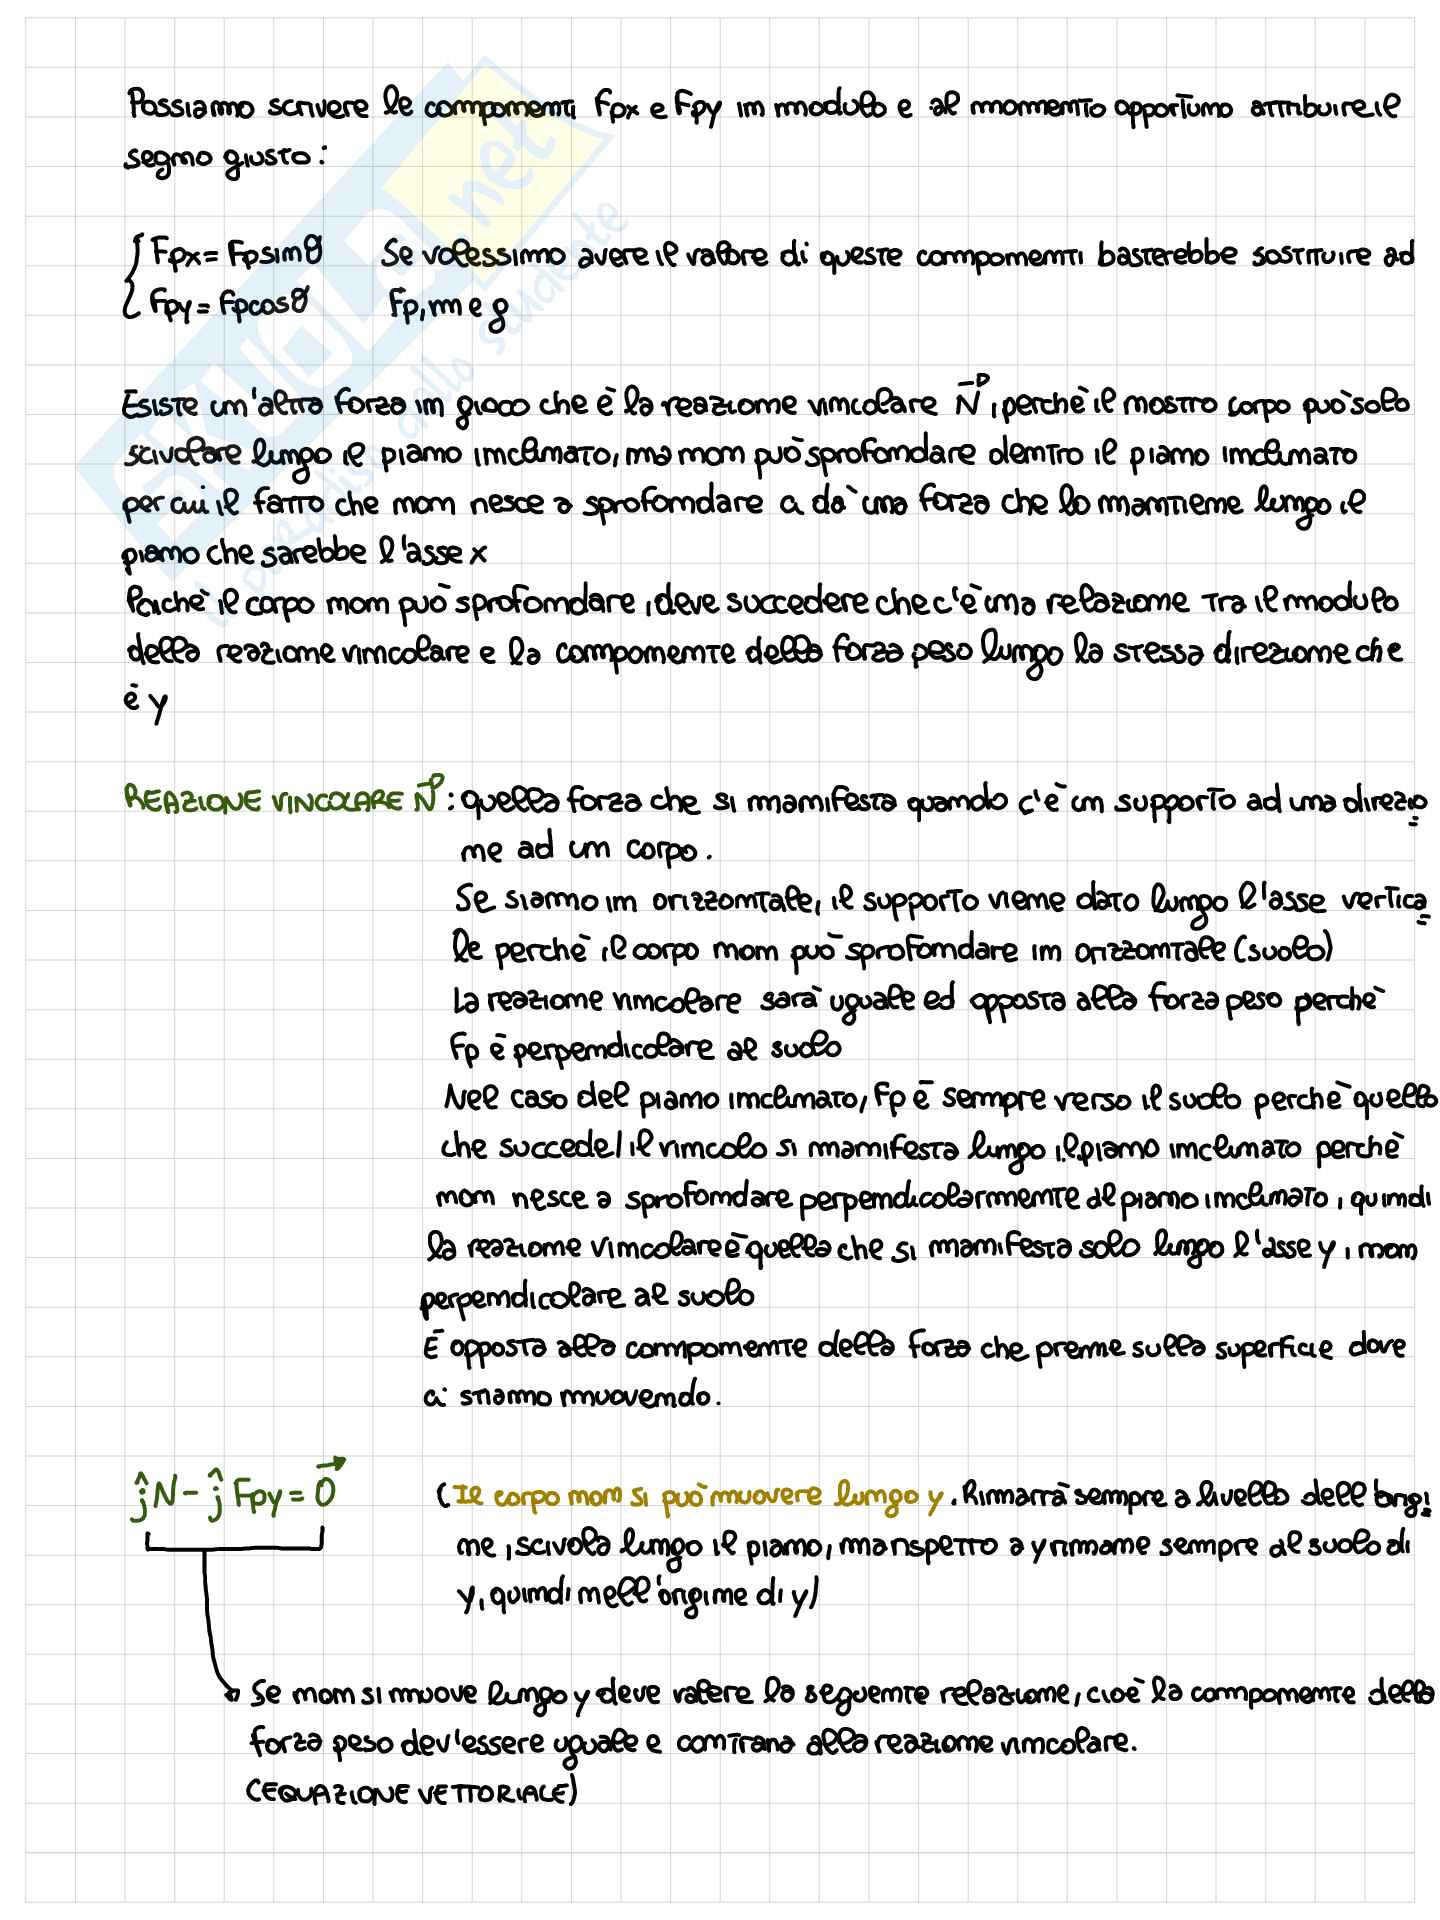 Possiamo scrivere le componenti Fpx e Fpy in modulo e al momento opportuno attribuire il
segno giusto:
Fpx = Fp sinθ Se volessimo avere il valore di queste componenti basterebbe sostituire ad
Fpy = Fp cosθ Fp, m e g
Esiste un'altra forza in gioco che è la reazione vincolare N⃗, perchè il nostro corpo può solo
scivolare lungo il piano inclinato, ma non può sprofondare dentro il piano inclinato
per cui il fatto che non riesce a sprofondare ci dà una forza che lo mantiene lungo il
piano che sarebbe l'asse x
Poichè il corpo non può sprofondare, deve succedere che c'è una relazione tra il modulo
della reazione vincolare e la componente della forza peso lungo la stessa direzione che
è y
REAZIONE VINCOLARE N⃗: quella forza che si manifesta quando c'è un supporto ad una direzio
ne ad un corpo.
Se siamo in orizzontale, il supporto viene dato lungo l'asse vertica
le perchè il corpo non può sprofondare in orizzontale (suolo)
La reazione vincolare sarà uguale ed opposta alla forza peso perchè
Fp è perpendicolare al suolo
Nel caso del piano inclinato, Fp è sempre verso il suolo perchè quello
che succede/il vincolo si manifesta lungo il piano inclinato perchè
non riesce a sprofondare perpendicolarmente al piano inclinato, quindi
la reazione vincolare è quella che si manifesta solo lungo l'asse y, non
perpendicolare al suolo
È opposta alla componente della forza che preme sulla superficie dove
ci stiamo muovendo.
ĵ N - ĵ Fpy = 0⃗ (Il corpo non si può muovere lungo y. Rimarrà sempre a livello dell'origi
ne, scivola lungo il piano, ma rispetto a y rimane sempre al suolo di
y, quindi nell'origine di y)
Se non si muove lungo y deve valere la seguente relazione, cioè la componente della
forza peso dev'essere uguale e contraria alla reazione vincolare.
(EQUAZIONE VETTORIALE)
SKUOLA.net
il paradiso dello studente